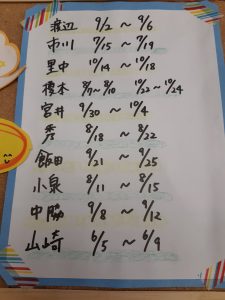 渡辺 9/2 ~ 9/6
市川 7/15 ~ 7/19
里中 10/14 ~ 10/18
榎本 8/7~8/10 10/22~10/24
宮井 9/30 ~ 10/4
秀 8/18 ~ 8/22
飯田 9/21 ~ 9/25
小泉 8/11 ~ 8/15
中脇 9/8 ~ 9/12
山崎 6/5 ~ 6/9